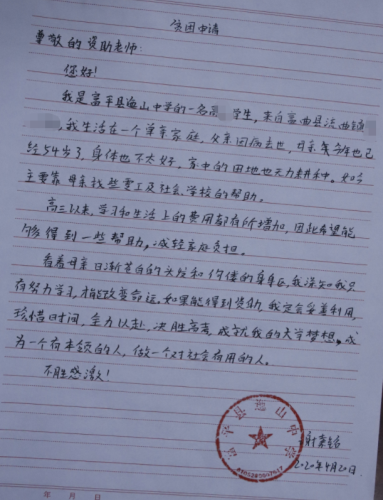 贫困申请
尊敬的资助老师：
您好！
我是富平县迤山中学的一名高 学生，来自富平县流曲镇
，我生活在一个单亲家庭，父亲因病去世，母亲今年也已
经54岁了，身体也不太好，家中的田地也无力耕种。如今
主要靠母亲找些零工及社会、学校的帮助。
高三以来，学习和生活上的费用都有所增加，因此希望能
够得到一些帮助，减轻家庭负担。
看着母亲日渐苍白的头发和佝偻的身躯，我深知我只
有努力学习，才能改变命运。如果能得到资助，我定会妥善利用，
珍惜时间，全力以赴，决胜高考，成就我的大学梦想，成
为一个有本领的人，做一个对社会有用的人。
不胜感激！
富平县迤山中学
2020年4月20日.
年 月 日